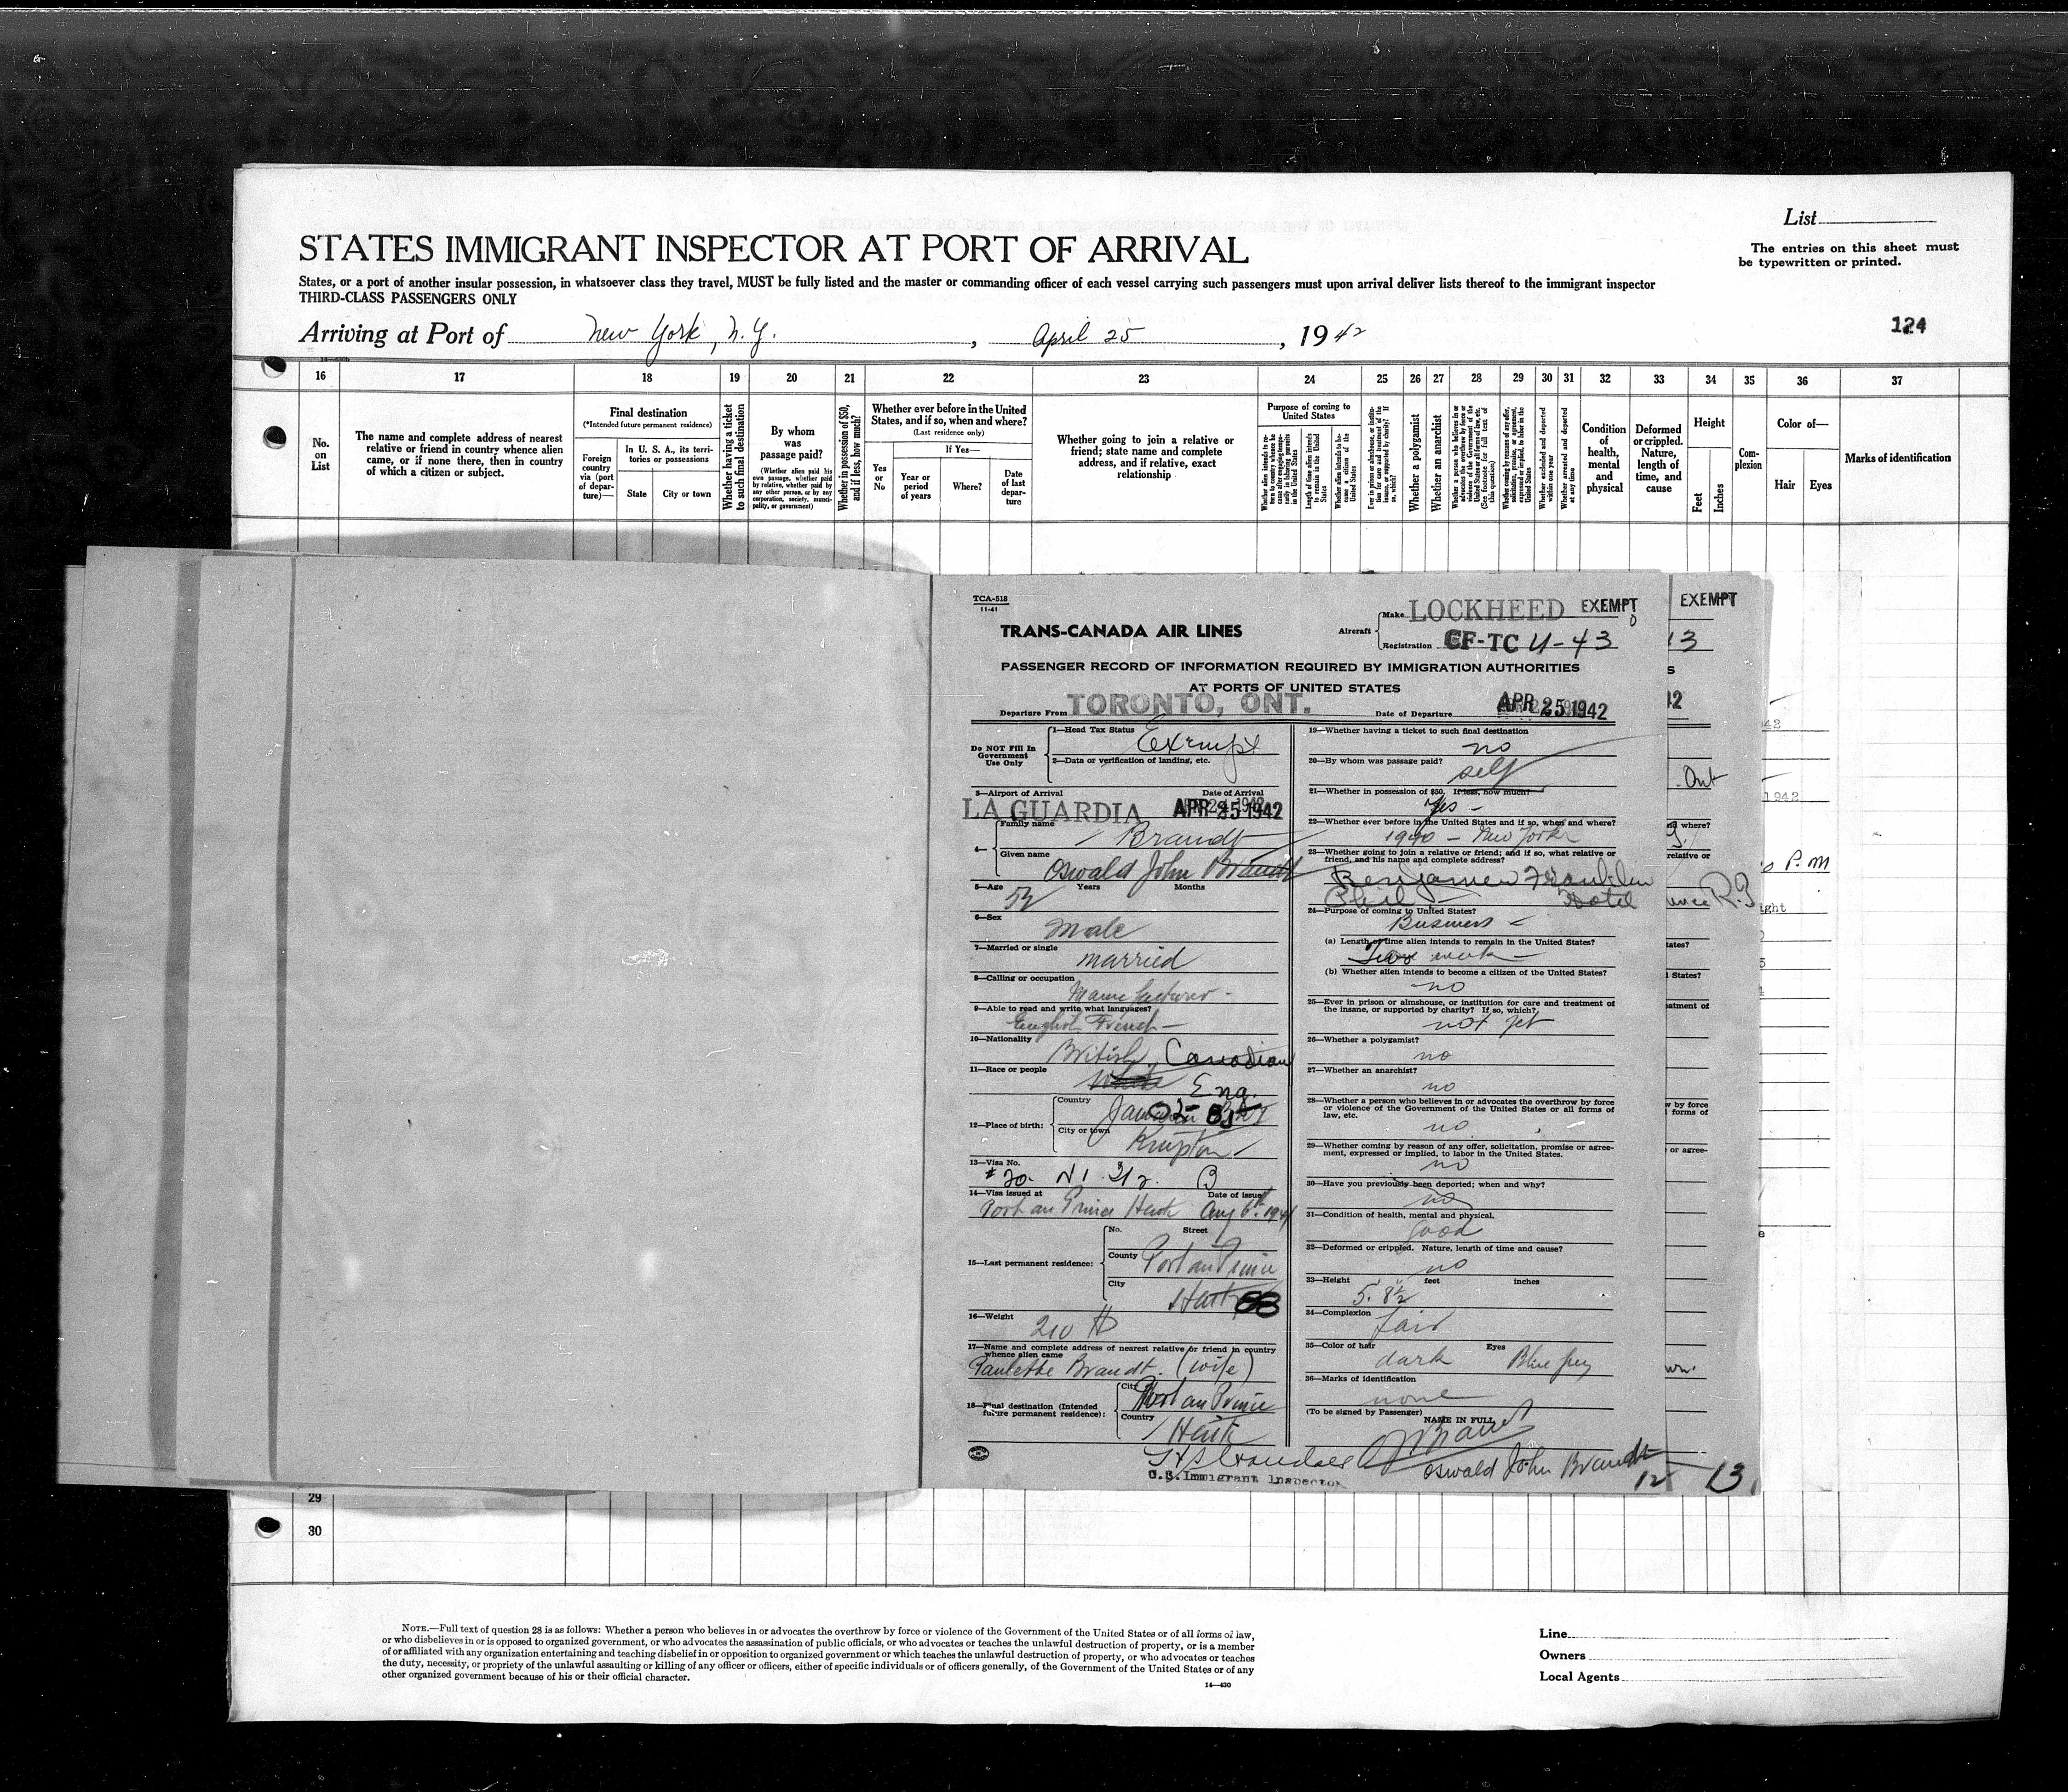 List
The entries on this sheet must
be typewritten or printed.
STATES IMMIGRANT INSPECTOR AT PORT OF ARRIVAL
States, or a port of another insular possession, in whatsoever class they travel, MUST be fully listed and the master or commanding officer of each vessel carrying such passengers must upon arrival deliver lists thereof to the immigrant inspector
THIRD-CLASS PASSENGERS ONLY
Arriving at Port of New York, N.Y. , April 25 , 1942
124
16 17 18 19 20 21 22 23 24 25 26 27 28 29 30 31 32 33 34 35 36 37
No.
on
List
The name and complete address of nearest
relative or friend in country whence alien
came, or if none there, then in country
of which a citizen or subject.
Final destination
(*Intended future permanent residence)
Foreign
country
via (port
of depar-
ture)—
In U. S. A., its terri-
tories or possessions
State
City or town
Whether having a ticket
to such final destination
By whom
was
passage paid?
(Whether alien paid his
own passage, whether paid
by relative, whether paid by
any other person, or by any
corporation, society, munici-
pality, or government)
Whether in possession of $50,
and if less, how much?
Whether ever before in the United
States, and if so, when and where?
(Last residence only)
If Yes—
Yes
or
No
Year or
period
of years
Where?
Date
of last
depar-
ture
Whether going to join a relative or
friend; state name and complete
address, and if relative, exact
relationship
Purpose of coming to
United States
Whether a polygamist
Whether an anarchist
Condition
of
health,
mental
and
physical
Deformed
or crippled.
Nature,
length of
time, and
cause
Height
Feet
Inches
Com-
plexion
Color of—
Hair
Eyes
Marks of identification
TCA-518
11-41
TRANS-CANADA AIR LINES
Aircraft
Make LOCKHEED EXEMPT
Registration CF-TC U-43
PASSENGER RECORD OF INFORMATION REQUIRED BY IMMIGRATION AUTHORITIES
AT PORTS OF UNITED STATES
Departure From TORONTO, ONT. Date of Departure APR 25 1942
Do NOT Fill In
Government
Use Only
1—Head Tax Status
Exempt
2—Data or verification of landing, etc.
3—Airport of Arrival Date of Arrival
LA GUARDIA APR 25 1942
4—
Family name
Brandt
Given name
Oswald John Brandt
5—Age Years Months
52
6—Sex
Male
7—Married or single
married
8—Calling or occupation
Manufacturer -
9—Able to read and write what languages?
English French —
10—Nationality
British, Canadian
11—Race or people
White Eng.
12—Place of birth:
Country
City or town
13—Visa No.
14—Visa issued at Date of issue
Port au Prince Haiti Aug 6th 1941
15—Last permanent residence:
No. Street
County
Port au Prince
City
Haiti 88
16—Weight
210 #
17—Name and complete address of nearest relative or friend in country
whence alien came
Paulette Brandt. (wife)
18—Final destination (Intended
future permanent residence):
City
Port au Prince
Country
Haiti
U.S. Immigrant Inspector
19—Whether having a ticket to such final destination
no
20—By whom was passage paid?
self
21—Whether in possession of $50. If less, how much?
Yes -
22—Whether ever before in the United States and if so, when and where?
1940 - New York
23—Whether going to join a relative or friend; and if so, what relative or
friend, and his name and complete address?
Benjamin Franklin
Phil — Hotel
24—Purpose of coming to United States?
Business -
(a) Length of time alien intends to remain in the United States?
Two week —
(b) Whether alien intends to become a citizen of the United States?
no
25—Ever in prison or almshouse, or institution for care and treatment of
the insane, or supported by charity? If so, which?
not yet
26—Whether a polygamist?
no
27—Whether an anarchist?
no
28—Whether a person who believes in or advocates the overthrow by force
or violence of the Government of the United States or all forms of
law, etc.
no
29—Whether coming by reason of any offer, solicitation, promise or agree-
ment, expressed or implied, to labor in the United States.
no
30—Have you previously been deported; when and why?
no
31—Condition of health, mental and physical.
good
32—Deformed or crippled. Nature, length of time and cause?
no
33—Height feet inches
5' 8½"
34—Complexion
fair
35—Color of hair Eyes
dark Blue grey
36—Marks of identification
none
(To be signed by Passenger)
NAME IN FULL
OJ Brandt
Oswald John Brandt
12 13
EXEMPT
13
Ont
P.M
29
30
NOTE.—Full text of question 28 is as follows: Whether a person who believes in or advocates the overthrow by force or violence of the Government of the United States or of all forms of law,
or who disbelieves in or is opposed to organized government, or who advocates the assassination of public officials, or who advocates or teaches the unlawful destruction of property, or is a member
of or affiliated with any organization entertaining and teaching disbelief in or opposition to organized government or which teaches the unlawful destruction of property, or who advocates or teaches
the duty, necessity, or propriety of the unlawful assaulting or killing of any officer or officers, either of specific individuals or of officers generally, of the Government of the United States or of any
other organized government because of his or their official character.
14—430
Line
Owners
Local Agents